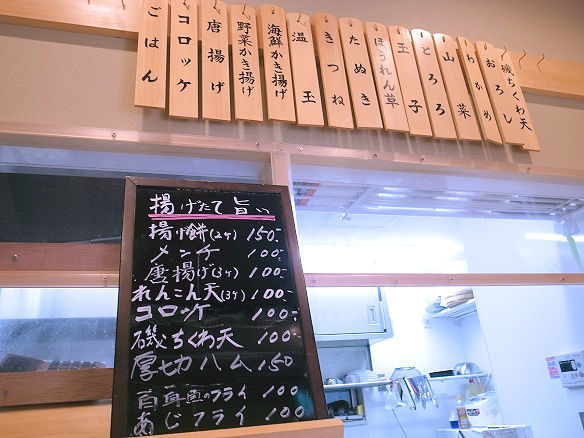 ごはん
コロッケ
唐揚げ
野菜かき揚げ
海鮮かき揚げ
温玉
きつね
たぬき
ほうれん草
玉子
とろろ
山菜
わかめ
おろし
磯ちくわ天
揚げたて旨い
揚げ餅(2ヶ) 150-
メンチ 100-
唐揚げ(3ヶ) 100-
れんこん天(3ヶ) 100-
コロッケ 100-
磯ちくわ天 100-
厚切ハム 150
白身魚のフライ 100
あじフライ 100